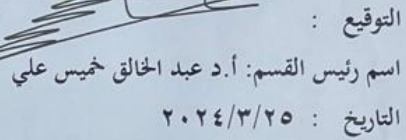 التوقيع :
اسم رئيس القسم: أ.د عبد الخالق خميس علي
التاريخ : ٢٠٢٤/٣/٢٥